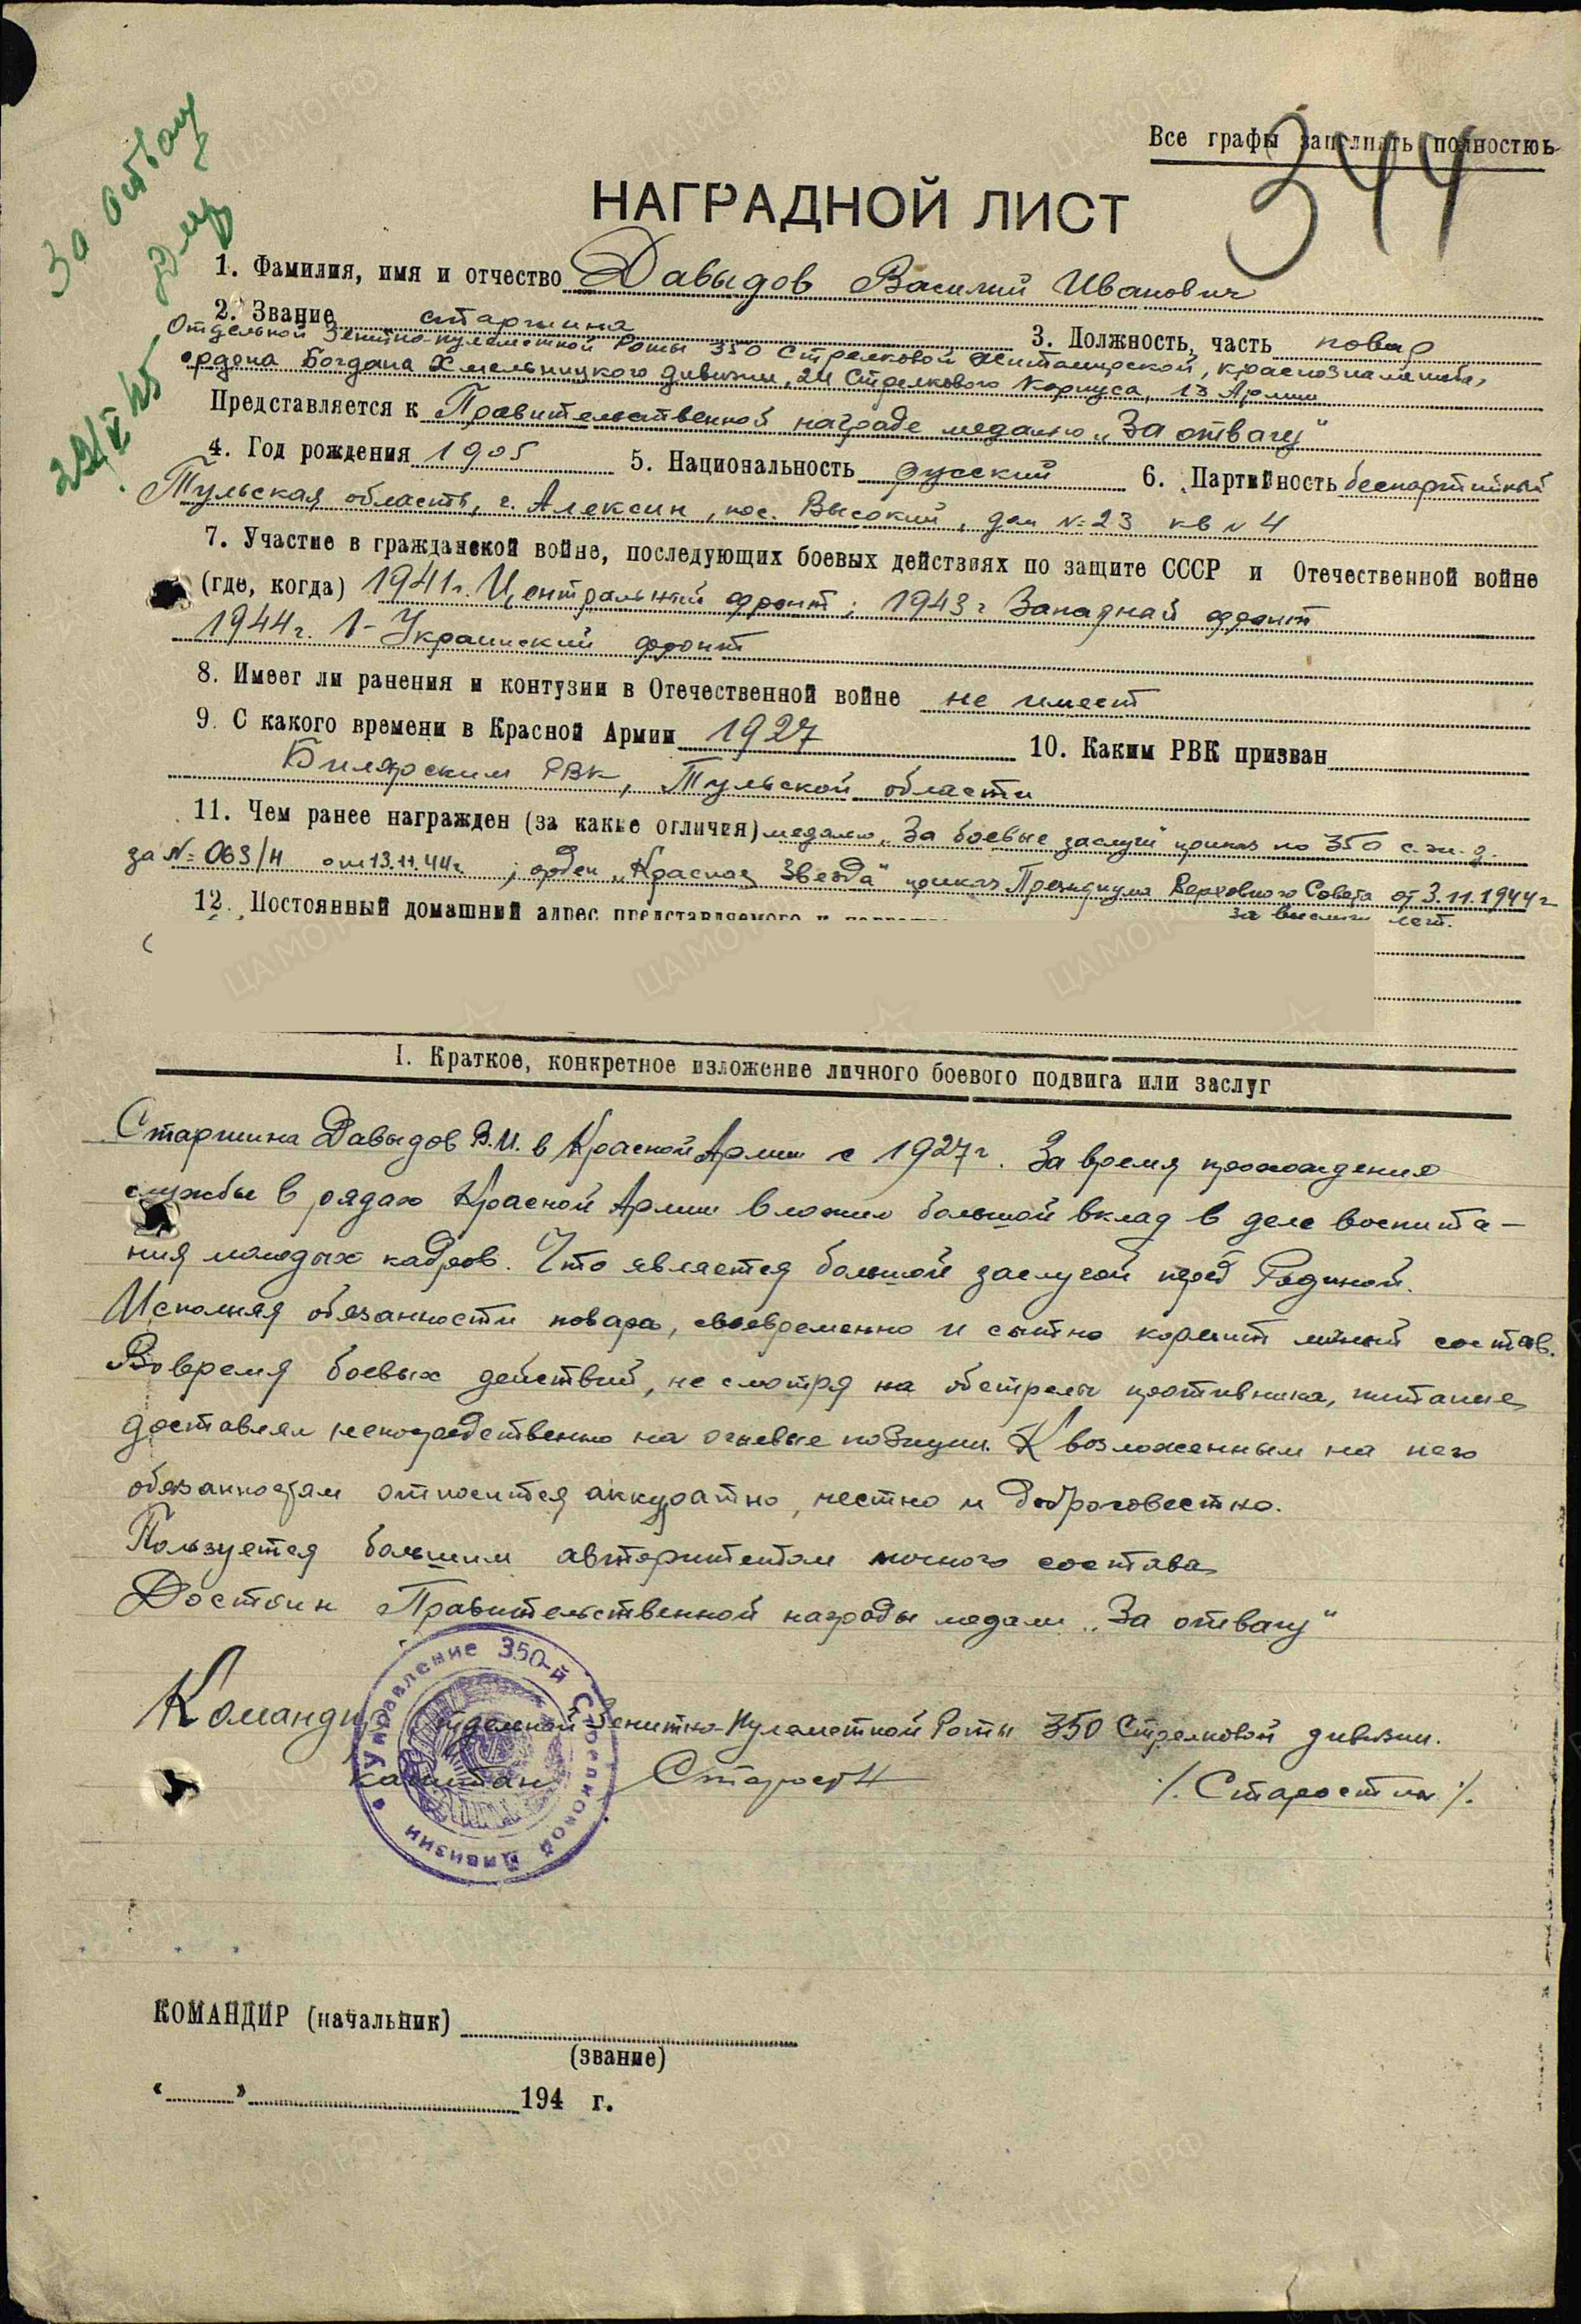 Все графы заполнять полностью
344
За отвагу
29/V 45
НАГРАДНОЙ ЛИСТ
1. Фамилия, имя и отчество Давыдов Василий Иванович
2. Звание старшина 3. Должность, часть повар
Отдельной Зенитно-пулеметной Роты 350 Стрелковой Житомирской, краснознаменной,
ордена Богдана Хмельницкого дивизии, 24 Стрелкового Корпуса, 13 Армии
Представляется к Правительственной награде медалью „За отвагу"
4. Год рождения 1905 5. Национальность русский 6. Партийность беспартийный
Тульская область, г. Алексин, пос. Высокий, дом № 23 кв № 4
7. Участие в гражданской войне, последующих боевых действиях по защите СССР и Отечественной войне
(где, когда) 1941г. Центральный фронт; 1943г Западный фронт
1944г. 1-Украинский фронт
8. Имеет ли ранения и контузии в Отечественной войне не имеет
9. С какого времени в Красной Армии 1927 10. Каким РВК призван
РВК, Тульской области
11. Чем ранее награжден (за какие отличия) медалью „За боевые заслуги" приказ по 350 с.ж.д.
за № 063/н от 13.11.44г ; орден „Красная Звезда" приказ Президиума Верховного Совета от 3.11.1944г
за выслугу лет.
12. Постоянный домашний адрес представляемого к
I. Краткое, конкретное изложение личного боевого подвига или заслуг
Старшина Давыдов В.И. в Красной Армии с 1927г. За время прохождения
службы в рядах Красной Армии вложил большой вклад в деле воспита-
ния молодых кадров. Что является большой заслугой перед Родиной.
Исполняя обязанности повара, своевременно и сытно кормит личный состав.
Во время боевых действий, не смотря на обстрелы противника, питание
доставлял непосредственно на огневые позиции. К возложенным на него
обязанностям относится аккуратно, честно и добросовестно.
Пользуется большим авторитетом личного состава
Достоин Правительственной награды медали „За отвагу"
Командир отдельной Зенитно-Пулеметной Роты 350 Стрелковой дивизии.
капитан Старости /. Старостин ./.
Управление 350-й Стрелковой Дивизии
КОМАНДИР (начальник)
(звание)
“ ” 194 г.
ЦАМО.РФ